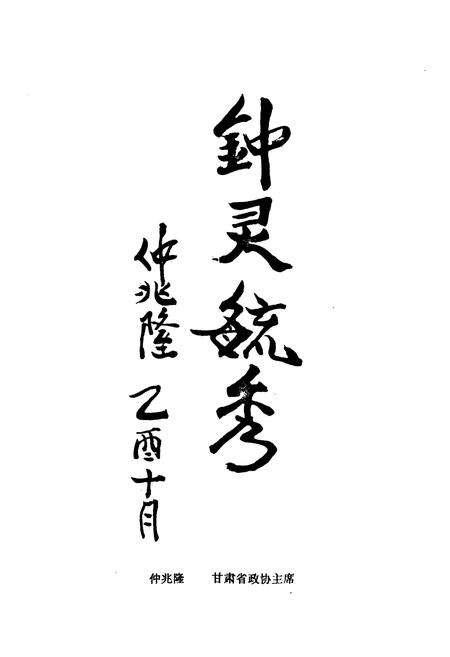 钟灵毓秀
仲兆隆 乙酉十月
仲兆隆 甘肃省政协主席